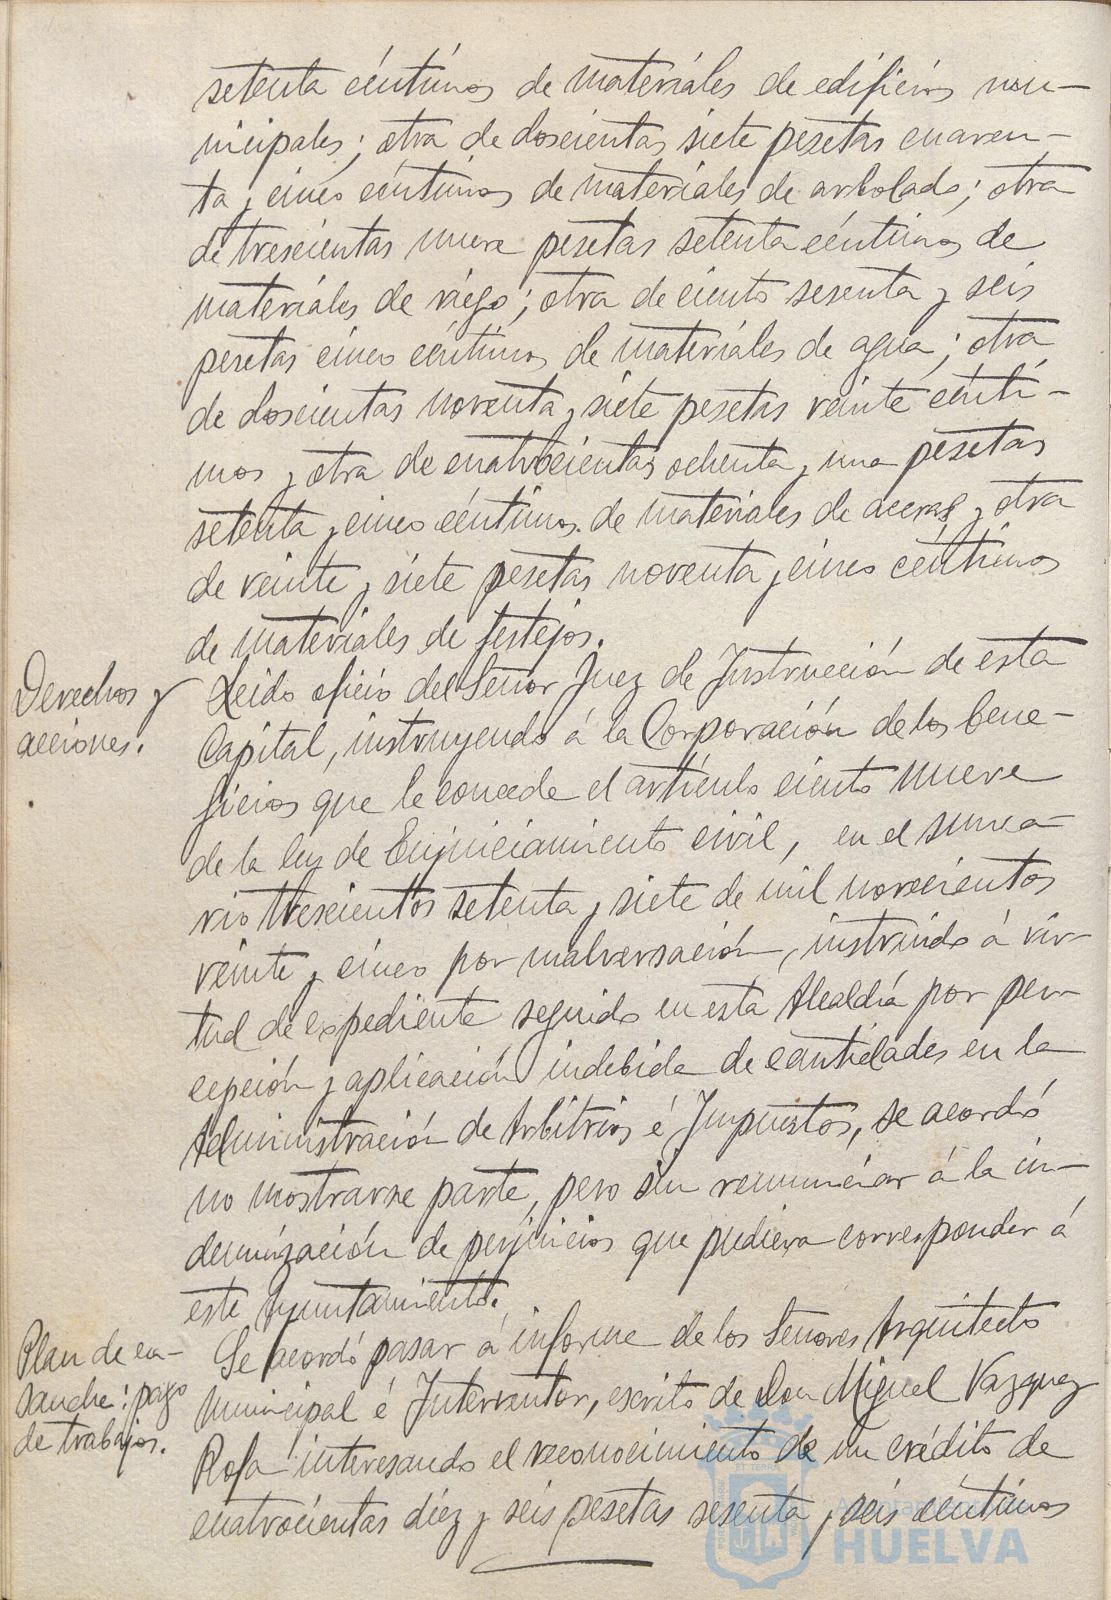 setenta céntimos de materiales de edificios mu-
nicipales; otra de doscientas siete pesetas cuaren-
ta y cinco céntimos de materiales de arbolado; otra
de trescientas nueve pesetas setenta céntimos de
materiales de riego; otra de ciento sesenta y seis
pesetas cinco céntimos de materiales de agua; otra
de doscientas noventa y siete pesetas veinte cénti-
mos y otra de cuatrocientas ochenta y una pesetas
setenta y cinco céntimos de materiales de aceras y otra
de veinte y siete pesetas noventa y cinco céntimos
de materiales de festejos.
Derechos y
acciones.
Leido oficio del Señor Juez de Instrucción de esta
Capital, instruyendo á la Corporación de los bene-
ficios que le concede el artículo ciento nueve
de la ley de Enjuiciamiento civil, en el suma-
rio trescientos setenta y siete de mil novecientos
veinte y cinco por malversación, instruido á vir-
tud de expediente seguido en esta Alcaldía por per-
cepción y aplicación indebida de cantidades en la
Administración de Arbitrios é Impuestos, se acordó
no mostrarse parte, pero sin renunciar á la in-
demnización de perjuicios que pudiera corresponder á
este Ayuntamiento.
Plan de en-
sanche: pago
de trabajos.
Se acordó pasar á informe de los Señores Arquitecto
Municipal é Interventor, escrito de Don Miguel Vazquez
Rofa interesando el reconocimiento de un crédito de
cuatrocientas diez y seis pesetas sesenta y seis céntimos
Ayuntamiento de
HUELVA